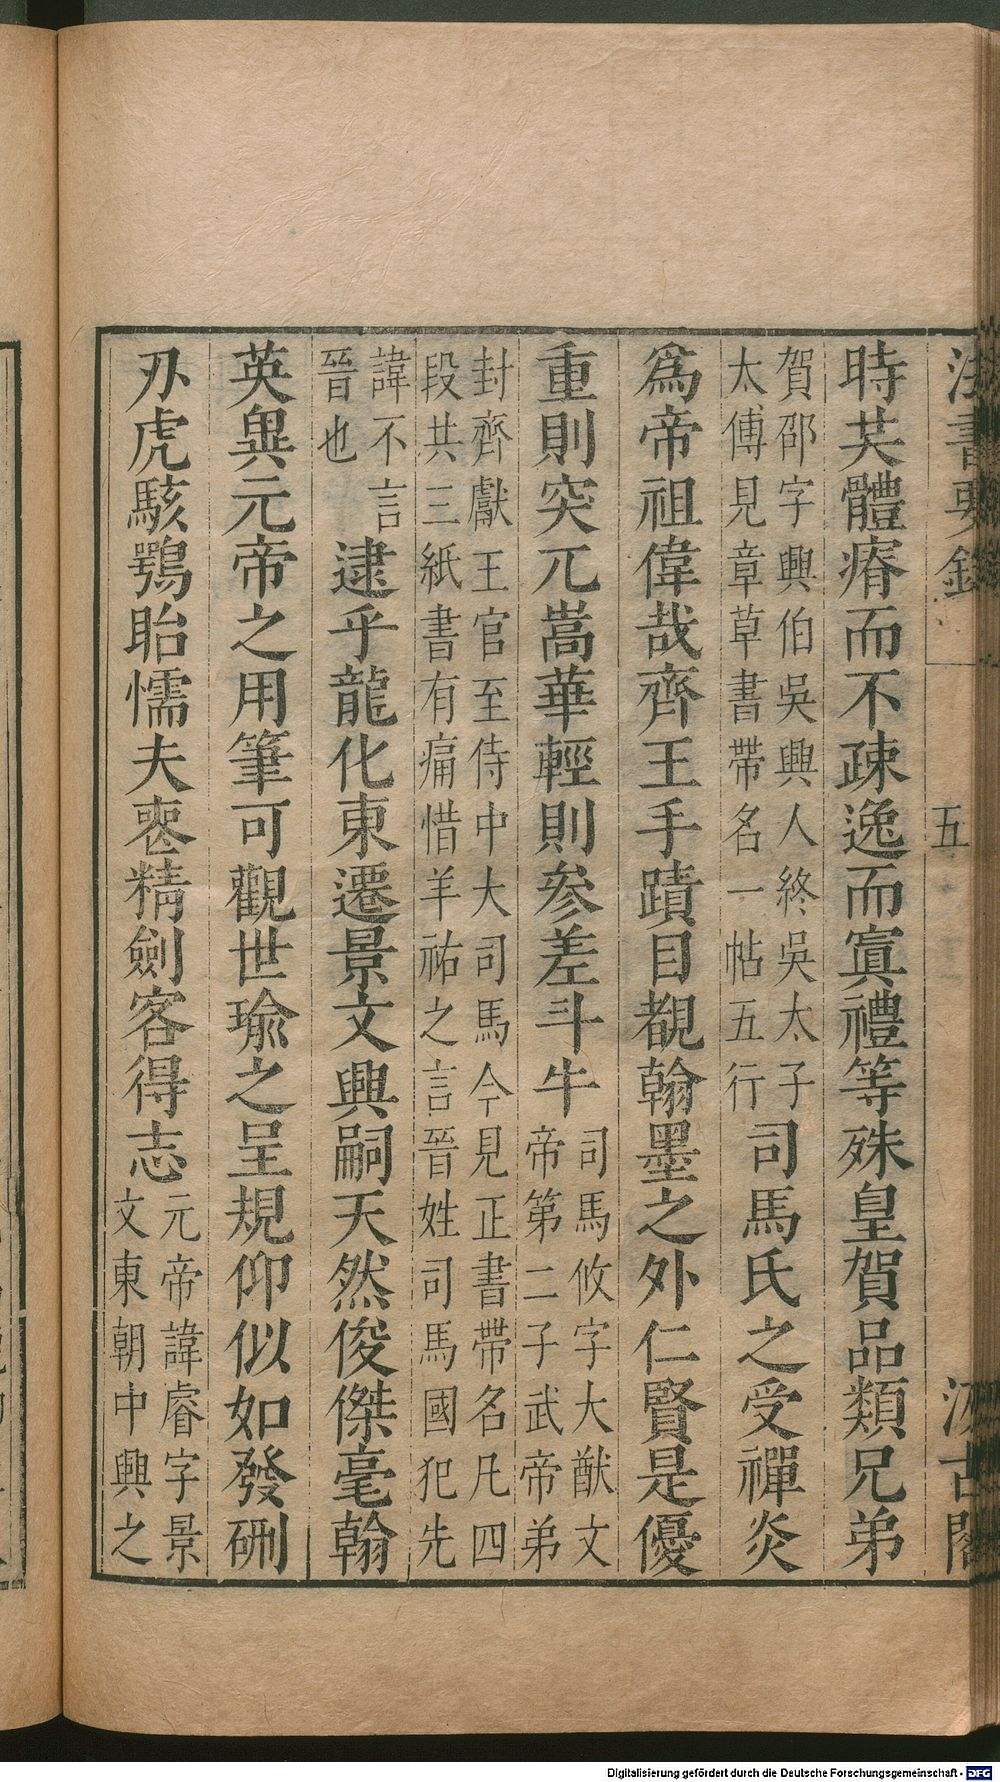 法書要錄
五
汲古閣
時芺體瘠而不疎逸而寘禮等殊皇賀品類兄弟
賀邵字興伯吳興人終吳太子
太傅見章草書帶名一帖五行
司馬氏之受禪炎
爲帝祖偉哉齊王手蹟目覩翰墨之外仁賢是優
重則突兀嵩華輕則參差斗牛
司馬攸字大猷文
帝第二子武帝弟
封齊獻王官至侍中大司馬今見正書帶名凡四
段共三紙書有痛惜羊祜之言晉姓司馬國犯先
諱不言
晉也
逮乎龍化東遷景文興嗣天然俊傑毫翰
英異元帝之用筆可觀世瑜之呈規仰似如發硎
刃虎駭鶚眙懦夫喪精劍客得志
元帝諱睿字景
文東朝中興之
Digitalisierung gefördert durch die Deutsche Forschungsgemeinschaft - DFG